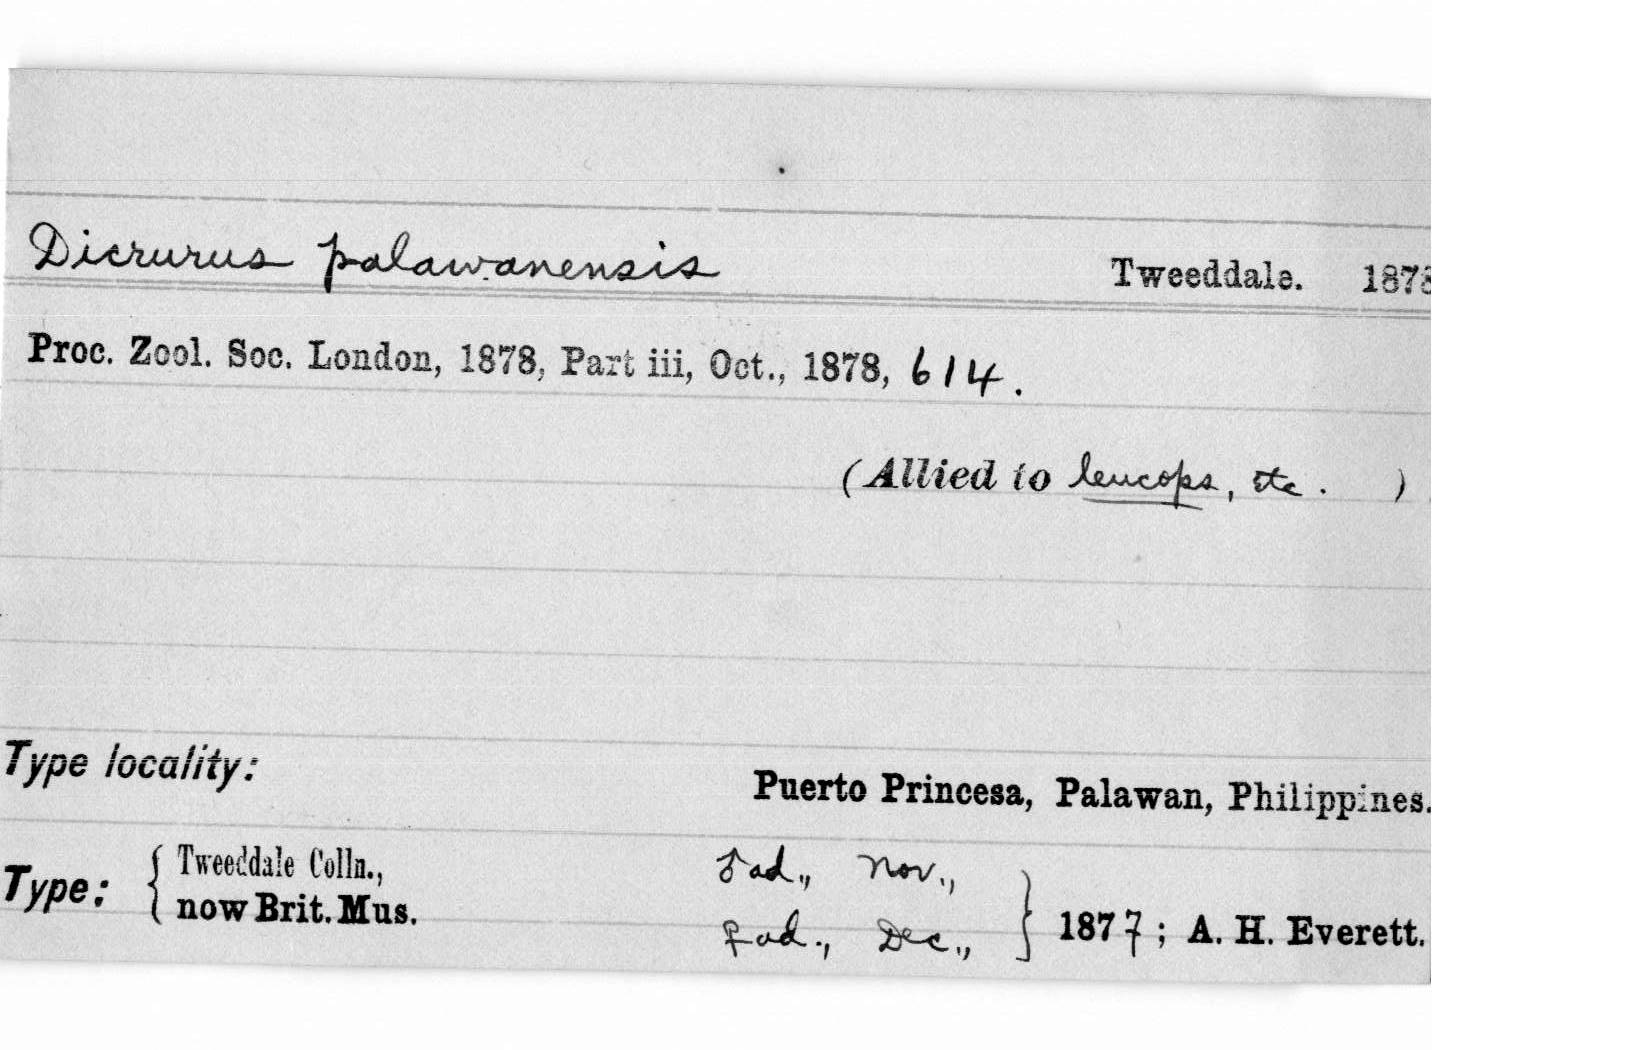 Dicrurus palawanensis Tweeddale. 1878
Proc. Zool. Soc. London, 1878, Part iii, Oct., 1878, 614.
(Allied to leucops, etc. )
Type locality:
Puerto Princesa, Palawan, Philippines.
Type: { Tweeddale Colln., ♂ ad., Nov.,
now Brit. Mus. ♀ ad., Dec., } 1877; A. H. Everett.